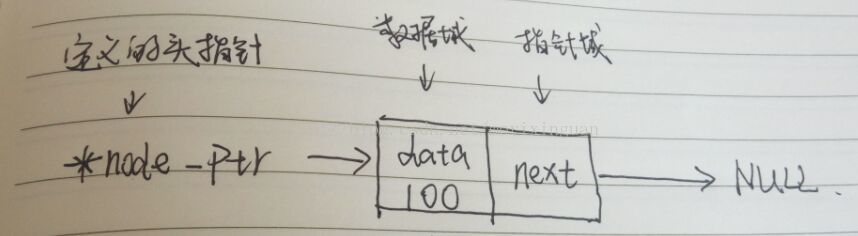 定义的头指针 数据域 指针域
*node_Ptr data next NULL.
100